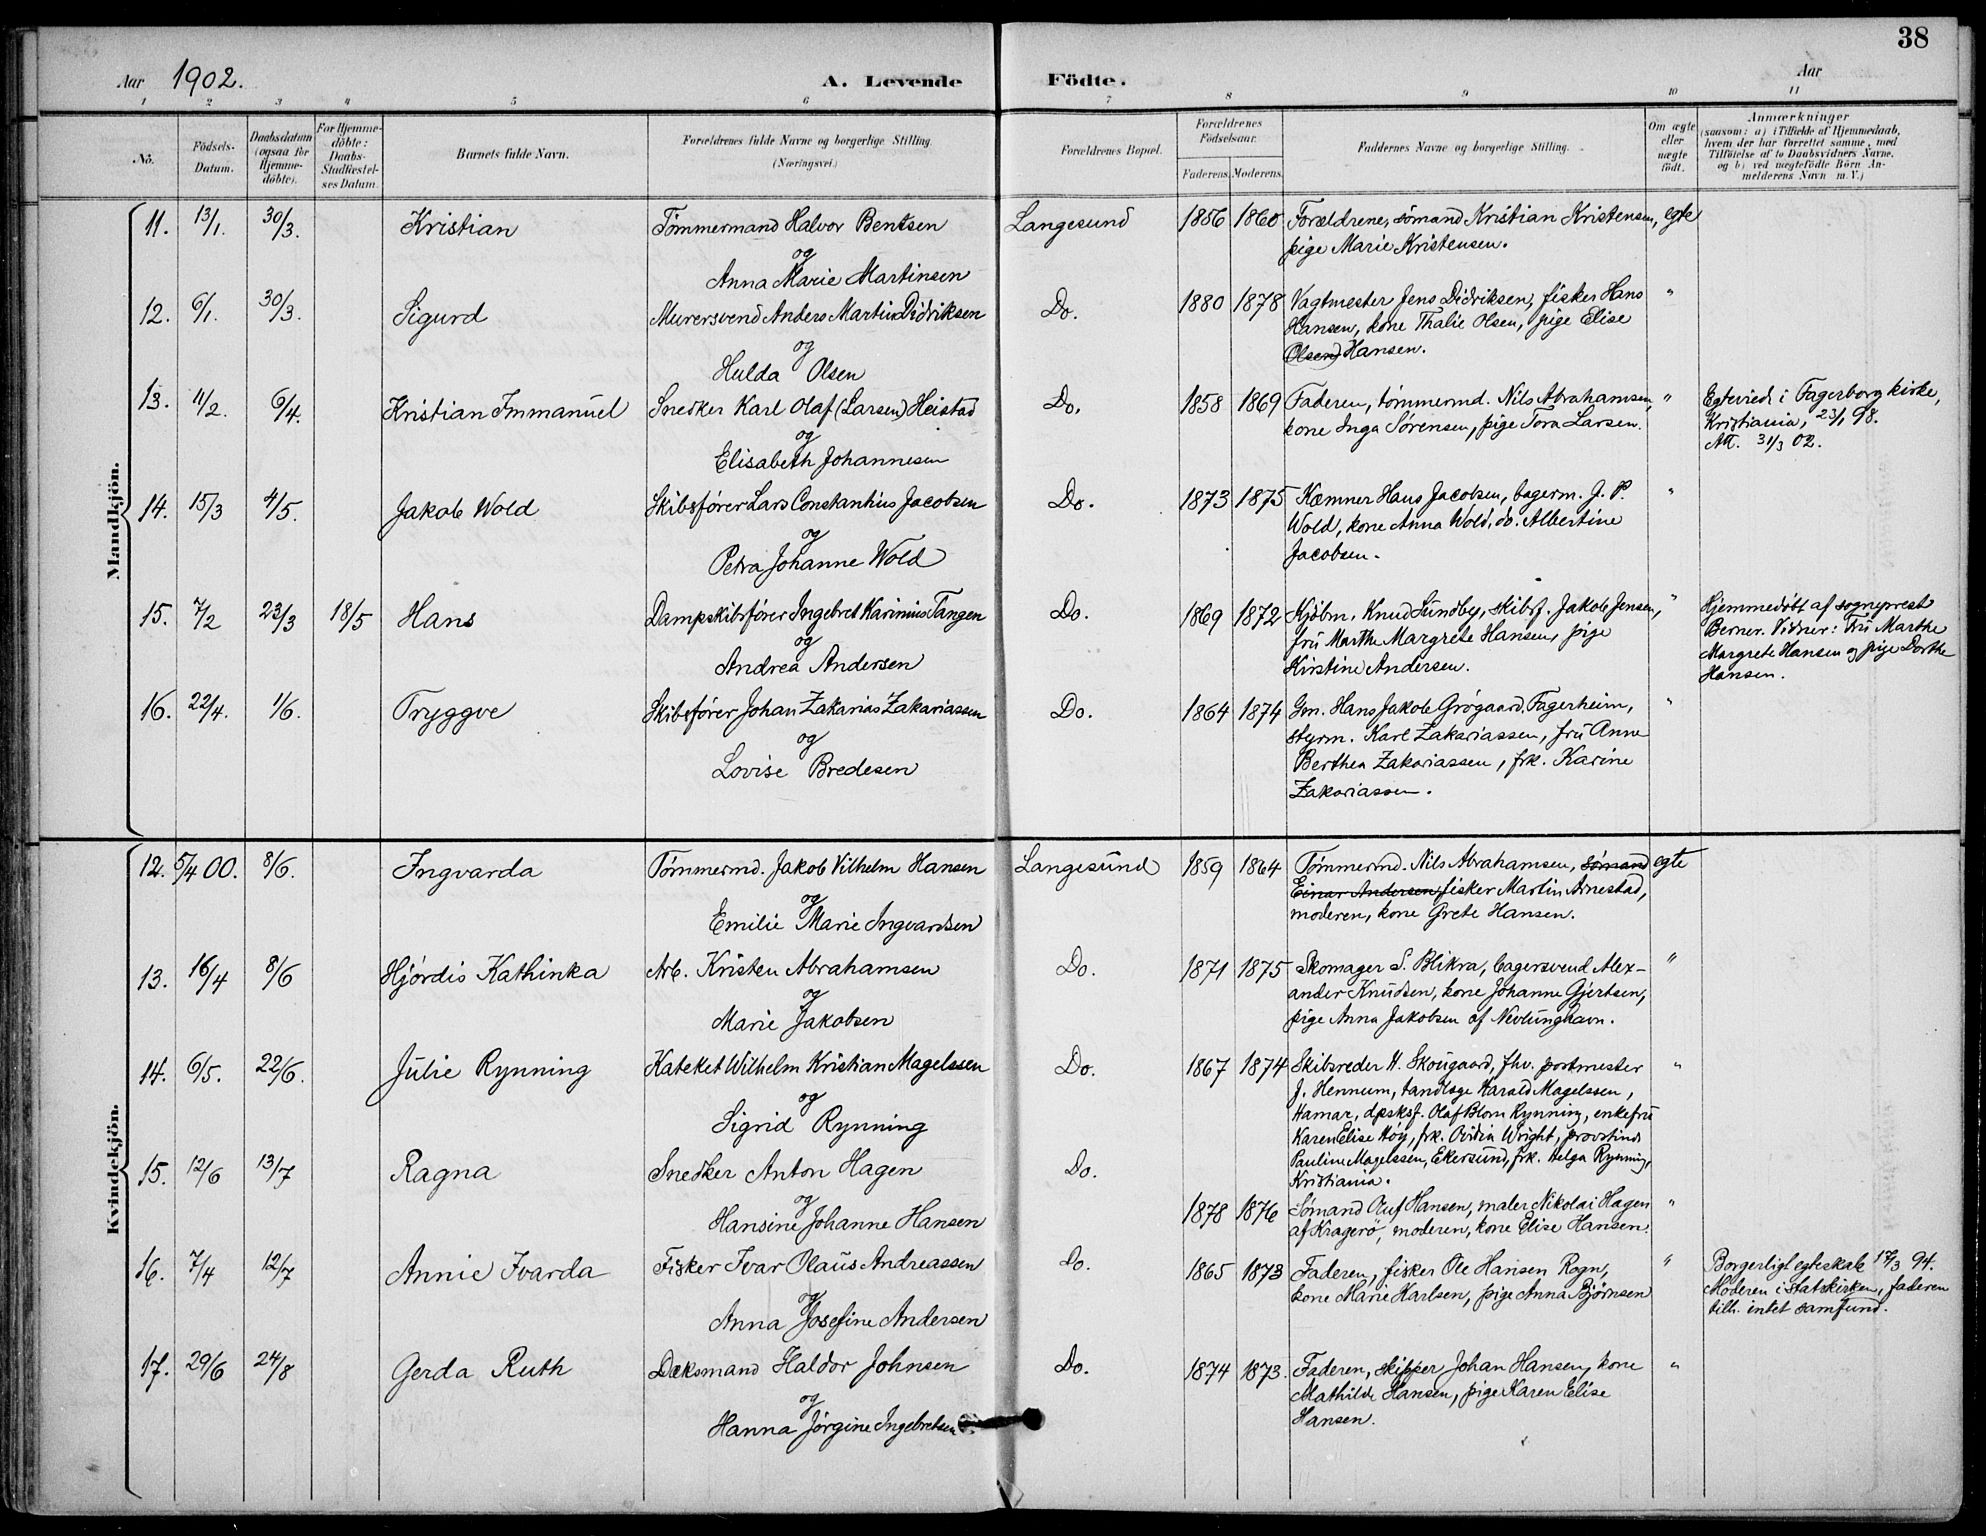 38
Aar 1902.
A. Levende Födte.
Aar
1 2 3 4 5 6 7 8 9 10 11
No.
Födsels-Datum.
Daabsdatum (ogsaa for Hjemme-döbte).
For Hjemme-döbte: Daabs-Stadfæstel-ses Datum.
Barnets fulde Navn.
Forældrenes fulde Navne og borgerlige Stilling. (Næringsvei.)
Forældrenes Bopæl.
Forældrenes Födselsaar.
Faderens. Moderens.
Faddernes Navne og borgerlige Stilling.
Om ægte eller uægte födt.
Anmærkninger
(saasom: a) i Tilfælde af Hjemmedaab,
hvem der har forrettet samme, med
Tilföielse af to Daabsvidners Navne,
og b) ved uægtefödte Börn An-
melderens Navn m. V.)
Mandkjön.
11. 13/1. 30/3. Kristian Tømmermand Halvor Bentsen Langesund 1856 1860 Forældrene, sømand Kristian Kristensen, egte
og pige Marie Kristensen.
Anna Marie Martinsen
12. 6/1. 30/3. Sigurd Murersvend Anders Martin Didriksen Do. 1880 1878 Vagtmester Jens Didriksen, fisker Hans "
og Hansen, kone Thalie Olsen, pige Elise
Hulda Olsen (Olsen) Hansen.
13. 11/2. 6/4. Kristian Immanuel Snedker Karl Olaf (Larsen) Heistad Do. 1858 1869 Faderen, tømmermd. Nils Abrahamsen, " Egteviede i Fagerborg kirke,
og kone Inga Sørensen, pige Tora Larsen. Kristiania, 23/1 98.
Elisabeth Johannesen Att. 31/3 02.
14. 15/3 4/5. Jakob Wold Skibsfører Lars Constantius Jacobsen Do. 1873 1875 Kæmner Hans Jacobsen, bagerm. J. P. "
og Wold, kone Anna Wold, do. Albertine
Petra Johanne Wold Jacobsen.
15. 7/2 23/3 18/5 Hans Dampskibsfører Ingebret Karinius Tangen Do. 1869 1872 Kjöbm. Knud Sundby, skibsf. Jakob Jensen, " Hjemmedøbt af sogneprest
og fru Marthe Margrete Hansen, pige Berner. Vidner: Fru Marthe
Andrea Andersen Kirstine Andersen. Margrete Hansen og pige Dorthe
Hansen.
16. 22/4. 1/6. Tryggve Skibsfører Johan Zakarias Zakariassen Do. 1864 1874 Hans Jakob Grøgaard, Fagerheim, "
og styrm. Karl Zakariassen, fru Anne
Lovise Bredesen Berthea Zakariassen, frk. Karine
Zakariassen.
Kvindekjön.
12. 5/4 00. 8/6. Ingvarda Tømmermd. Jakob Vilhelm Hansen Langesund 1859 1864 Tømmermd. Nils Abrahamsen, sømand egte
og Einar Andersen, fisker Martin Arnestad,
Emilie Marie Ingvardsen moderen, kone Grete Hansen.
13. 16/4 8/6 Hjördis Kathinka Arb. Kristen Abrahamsen Do. 1871 1875 Skomager S. Blikra, bagersvend Alex- "
og ander Knudsen, kone Johanne Gjertsen,
Marie Jakobsen pige Anna Jakobsen af Nevlunghavn.
14. 6/5. 22/6. Julie Rynning Kateket Wilhelm Kristian Magelssen Do. 1867 1874 Skibsreder H. Skougaard, fhv. postmester "
og J. Hennum, tandlæge Harald Magelssen,
Sigrid Rynning Hamar, dpsksf. Olaf Blom Rynning, enkefru
Karen Elise Höy, frk. Ovidia Wright, provstinde
Pauline Magelssen, Ekersund, frk. Helga Rynning,
Kristiania.
15. 12/6 13/7 Ragna Snedker Anton Hagen Do. 1878 1876 Sømand Oluf Hansen, maler Nikolai Hagen "
og af Kragerö, moderen, kone Elise Hansen.
Hansine Johanne Hansen
16. 7/4 12/7 Annie Ivarda Fisker Ivar Olaus Andreassen Do. 1865 1873 Faderen, fisker Ole Hansen Rogn, " Borgerligt egteskab 17/3 94.
og kone Marie Karlsen, pige Anna Bjørnsen Moderen i Statskirken, faderen
Anna Josefine Andersen tilh. intet samfund.
17. 29/6 24/8 Gerda Ruth Dæksmand Haldor Johnsen Do. 1874 1873. Faderen, skipper Johan Hansen, kone "
og Mathilde Hansen, pige Karen Elise
Hanna Jørgine Ingebretsen. Hansen.